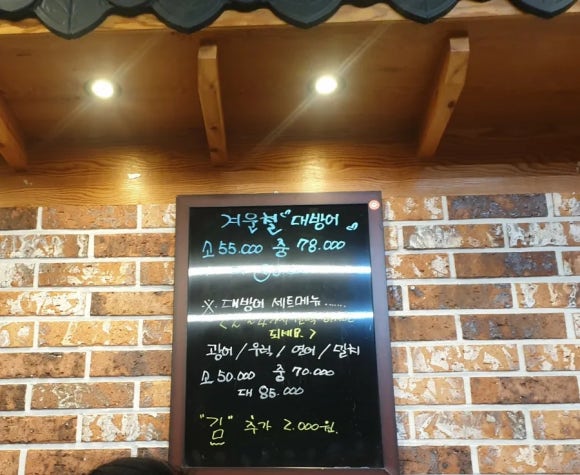 겨울철 대방어
소 55.000 중 78.000
※ 대방어 세트메뉴......
되세요>
광어/우럭/연어/밀치
소 50.000 중 70.000
대 85.000
"김" 추가 2.000원.